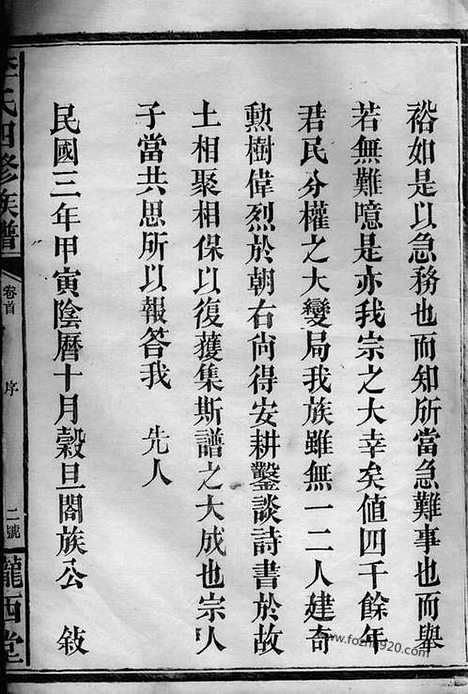 裕如是以急務也而知所當急難事也而舉
若無難噫是亦我宗之大幸矣值四千餘年
君民分權之大變局我族雖無一二人建奇
勲樹偉烈於朝右尙得安耕鑿談詩書於故
土相聚相保以復獲集斯譜之大成也宗人
子當共思所以報答我　先人
民國三年甲寅陰曆十月穀旦闔族公　敍
李氏四修族譜
卷首
序
二號
隴西堂
www.fozhu920.com